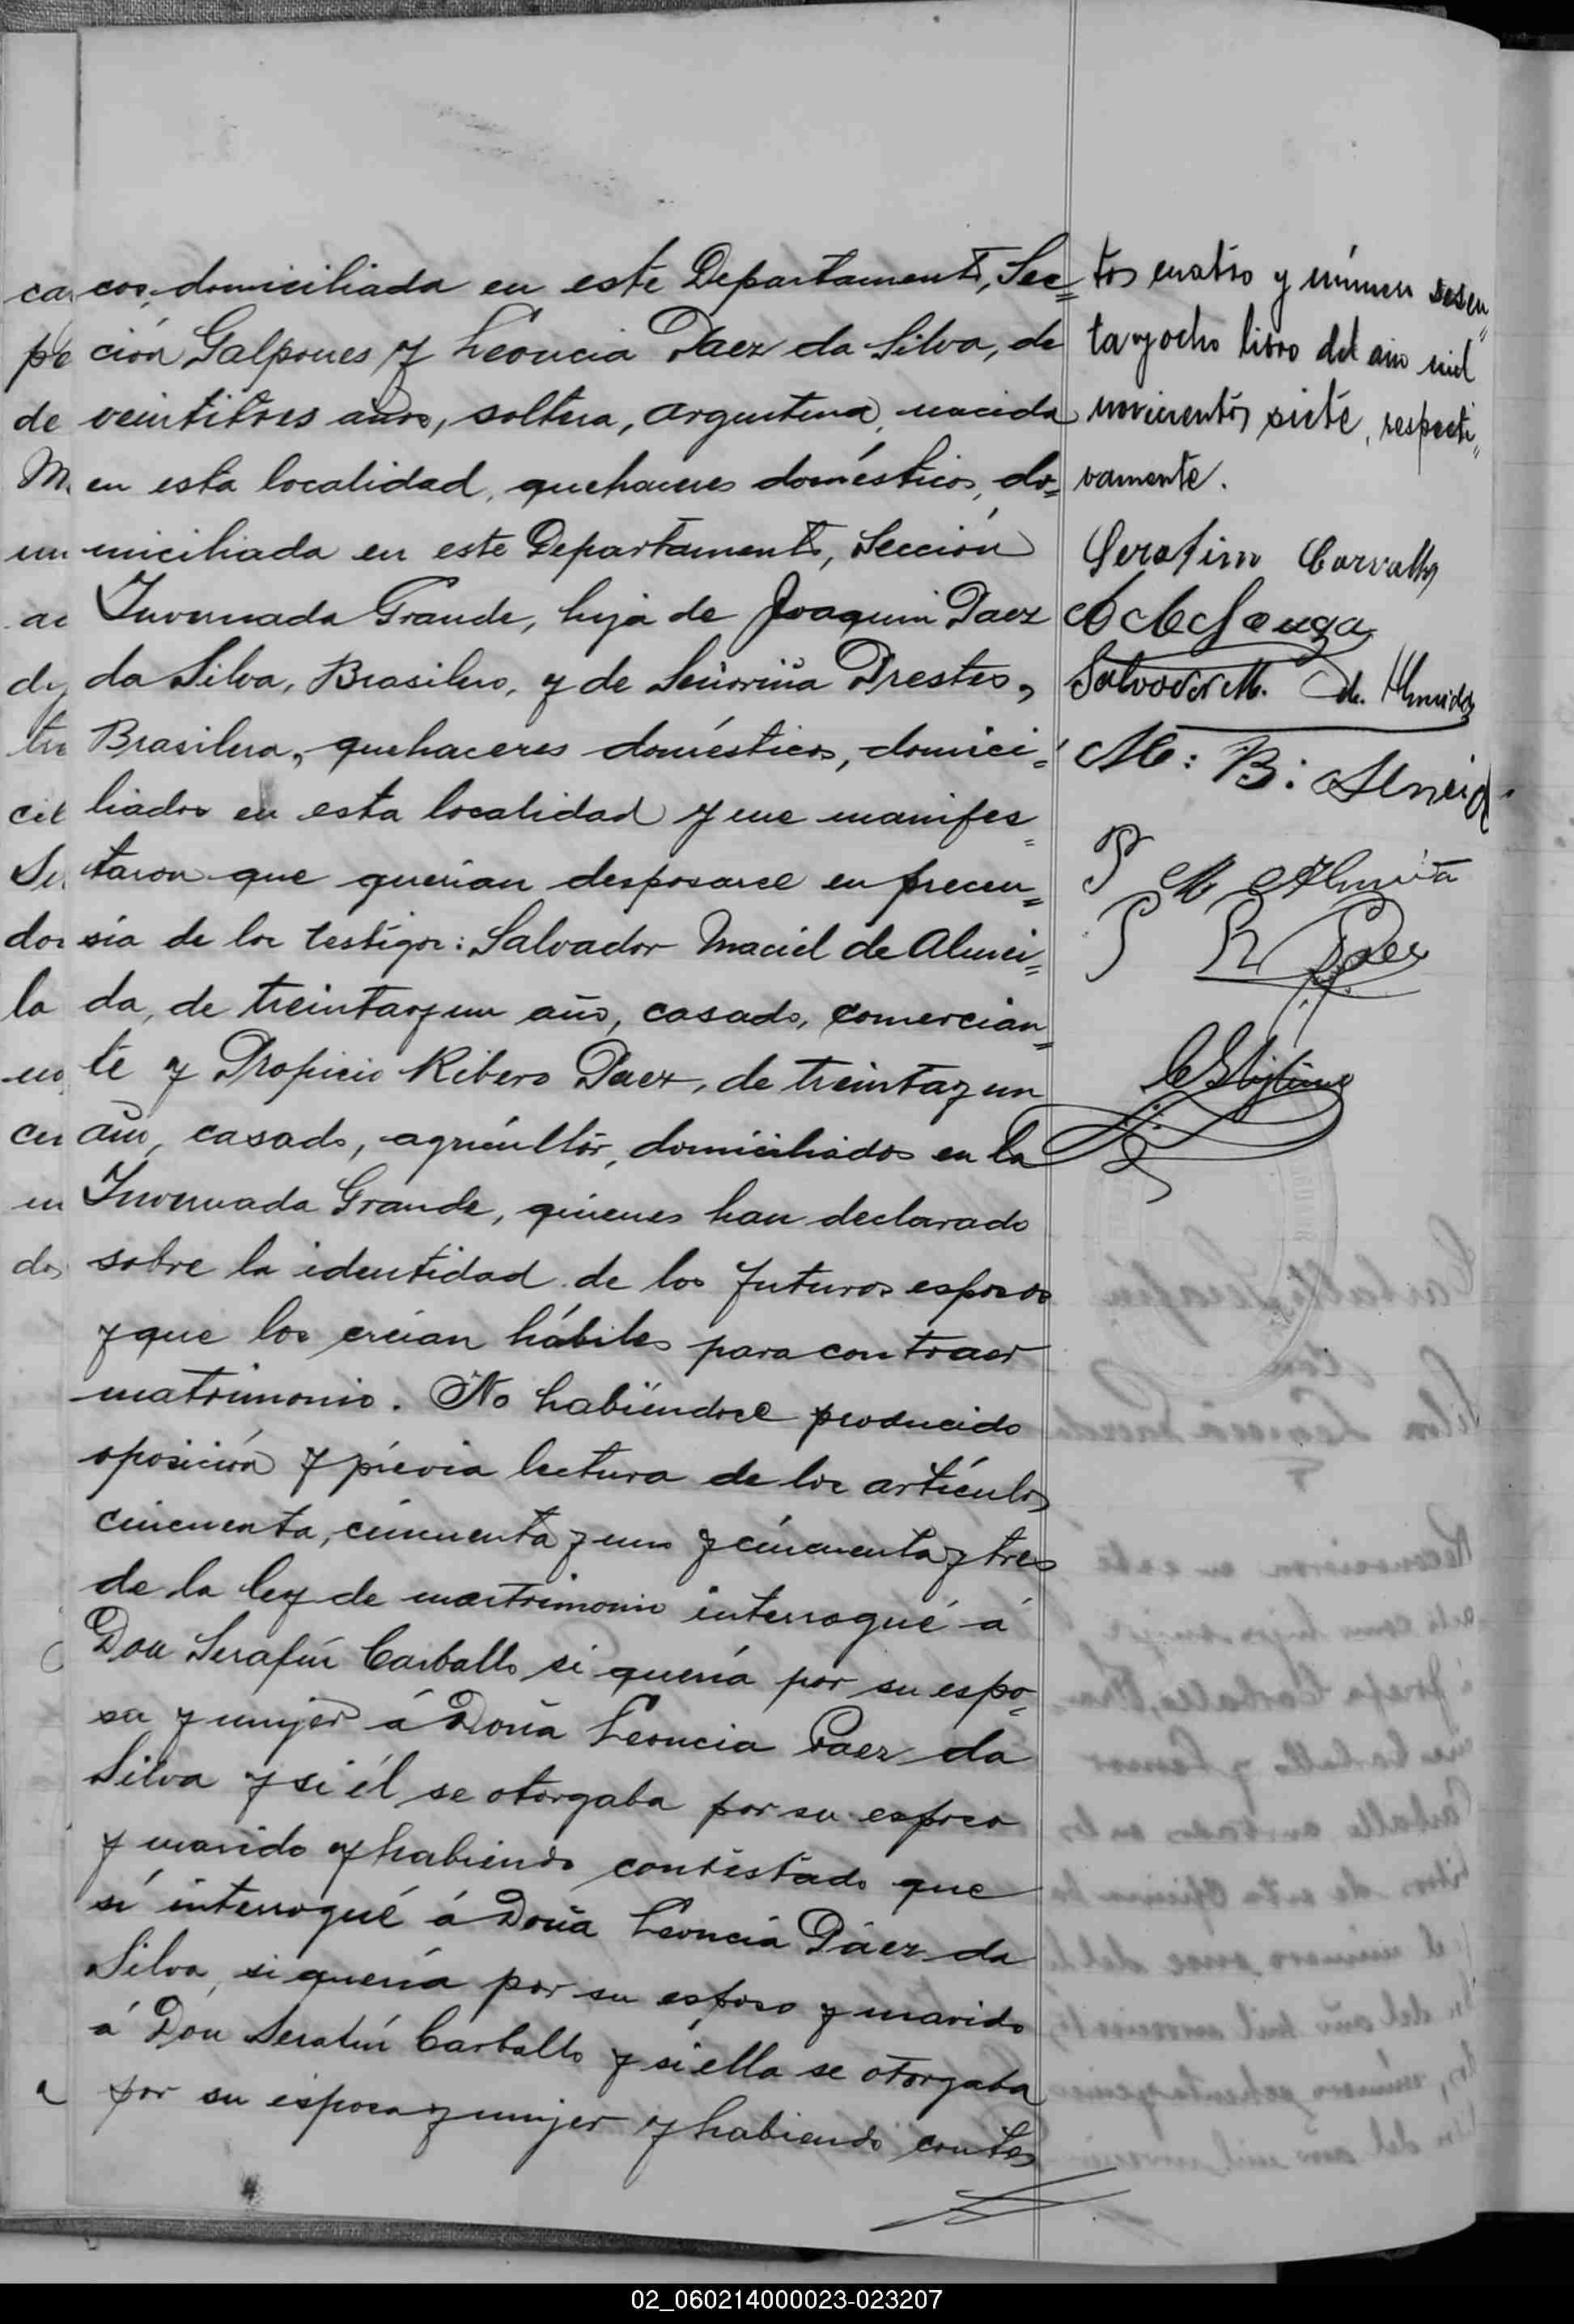 cos, domiciliada en este Departamento, Sec=
ción Galpones y Leoncia Paez da Silva, de
veintitres años, soltera, argentina, nacida
en esta localidad, quehaceres domésticos, do=
miciliada en este Departamento, Sección
Invernada Grande, hija de Joaquin Paez
da Silva, Brasilero, y de Señoriña Prestes,
Brasilera, quehaceres domésticos, domici=
liados en esta localidad y me manifes=
taron que querian desposarse en precen=
sia de los testigos: Salvador Maciel de Almei=
da, de treintayun año, casado, comercian=
te y Propicio Ribero Paez, de treintayun
año, casado, agricultor, domiciliados en la
Invernada Grande, quienes han declarado
sobre la identidad de los futuros esposos
y que los creian hábiles para contraer
matrimonio. No habiéndose producido
oposición y prévia lectura de los artículos
cincuenta, cincuenta y uno y cincuenta y tres
de la ley de matrimonio interrogué á
Don Serafín Carballo si quería por su espo=
sa y mujer á Doña Leoncia Paez da
Silva y si él se otorgaba por su esposo
y marido y habiendo contestado que
sí interrogué á Doña Leoncia Páez da
Silva, si quería por su esposo y marido
á Don Serafín Carballo y si ella se otorgaba
por su esposa y mujer y habiendo contes
tos cuatro y número sesen=
tayocho libro del año mil
novecientos siete, respecti=
vamente.
Serafim Carvalho
Salvador M. de Almeida
M: B: Almeid
P M Almeida
P R Paez
ca
pe
de
M.
un
ac
di
tre
cil
Se
dos
la
no
cu
en
dos
a
02_060214000023-023207